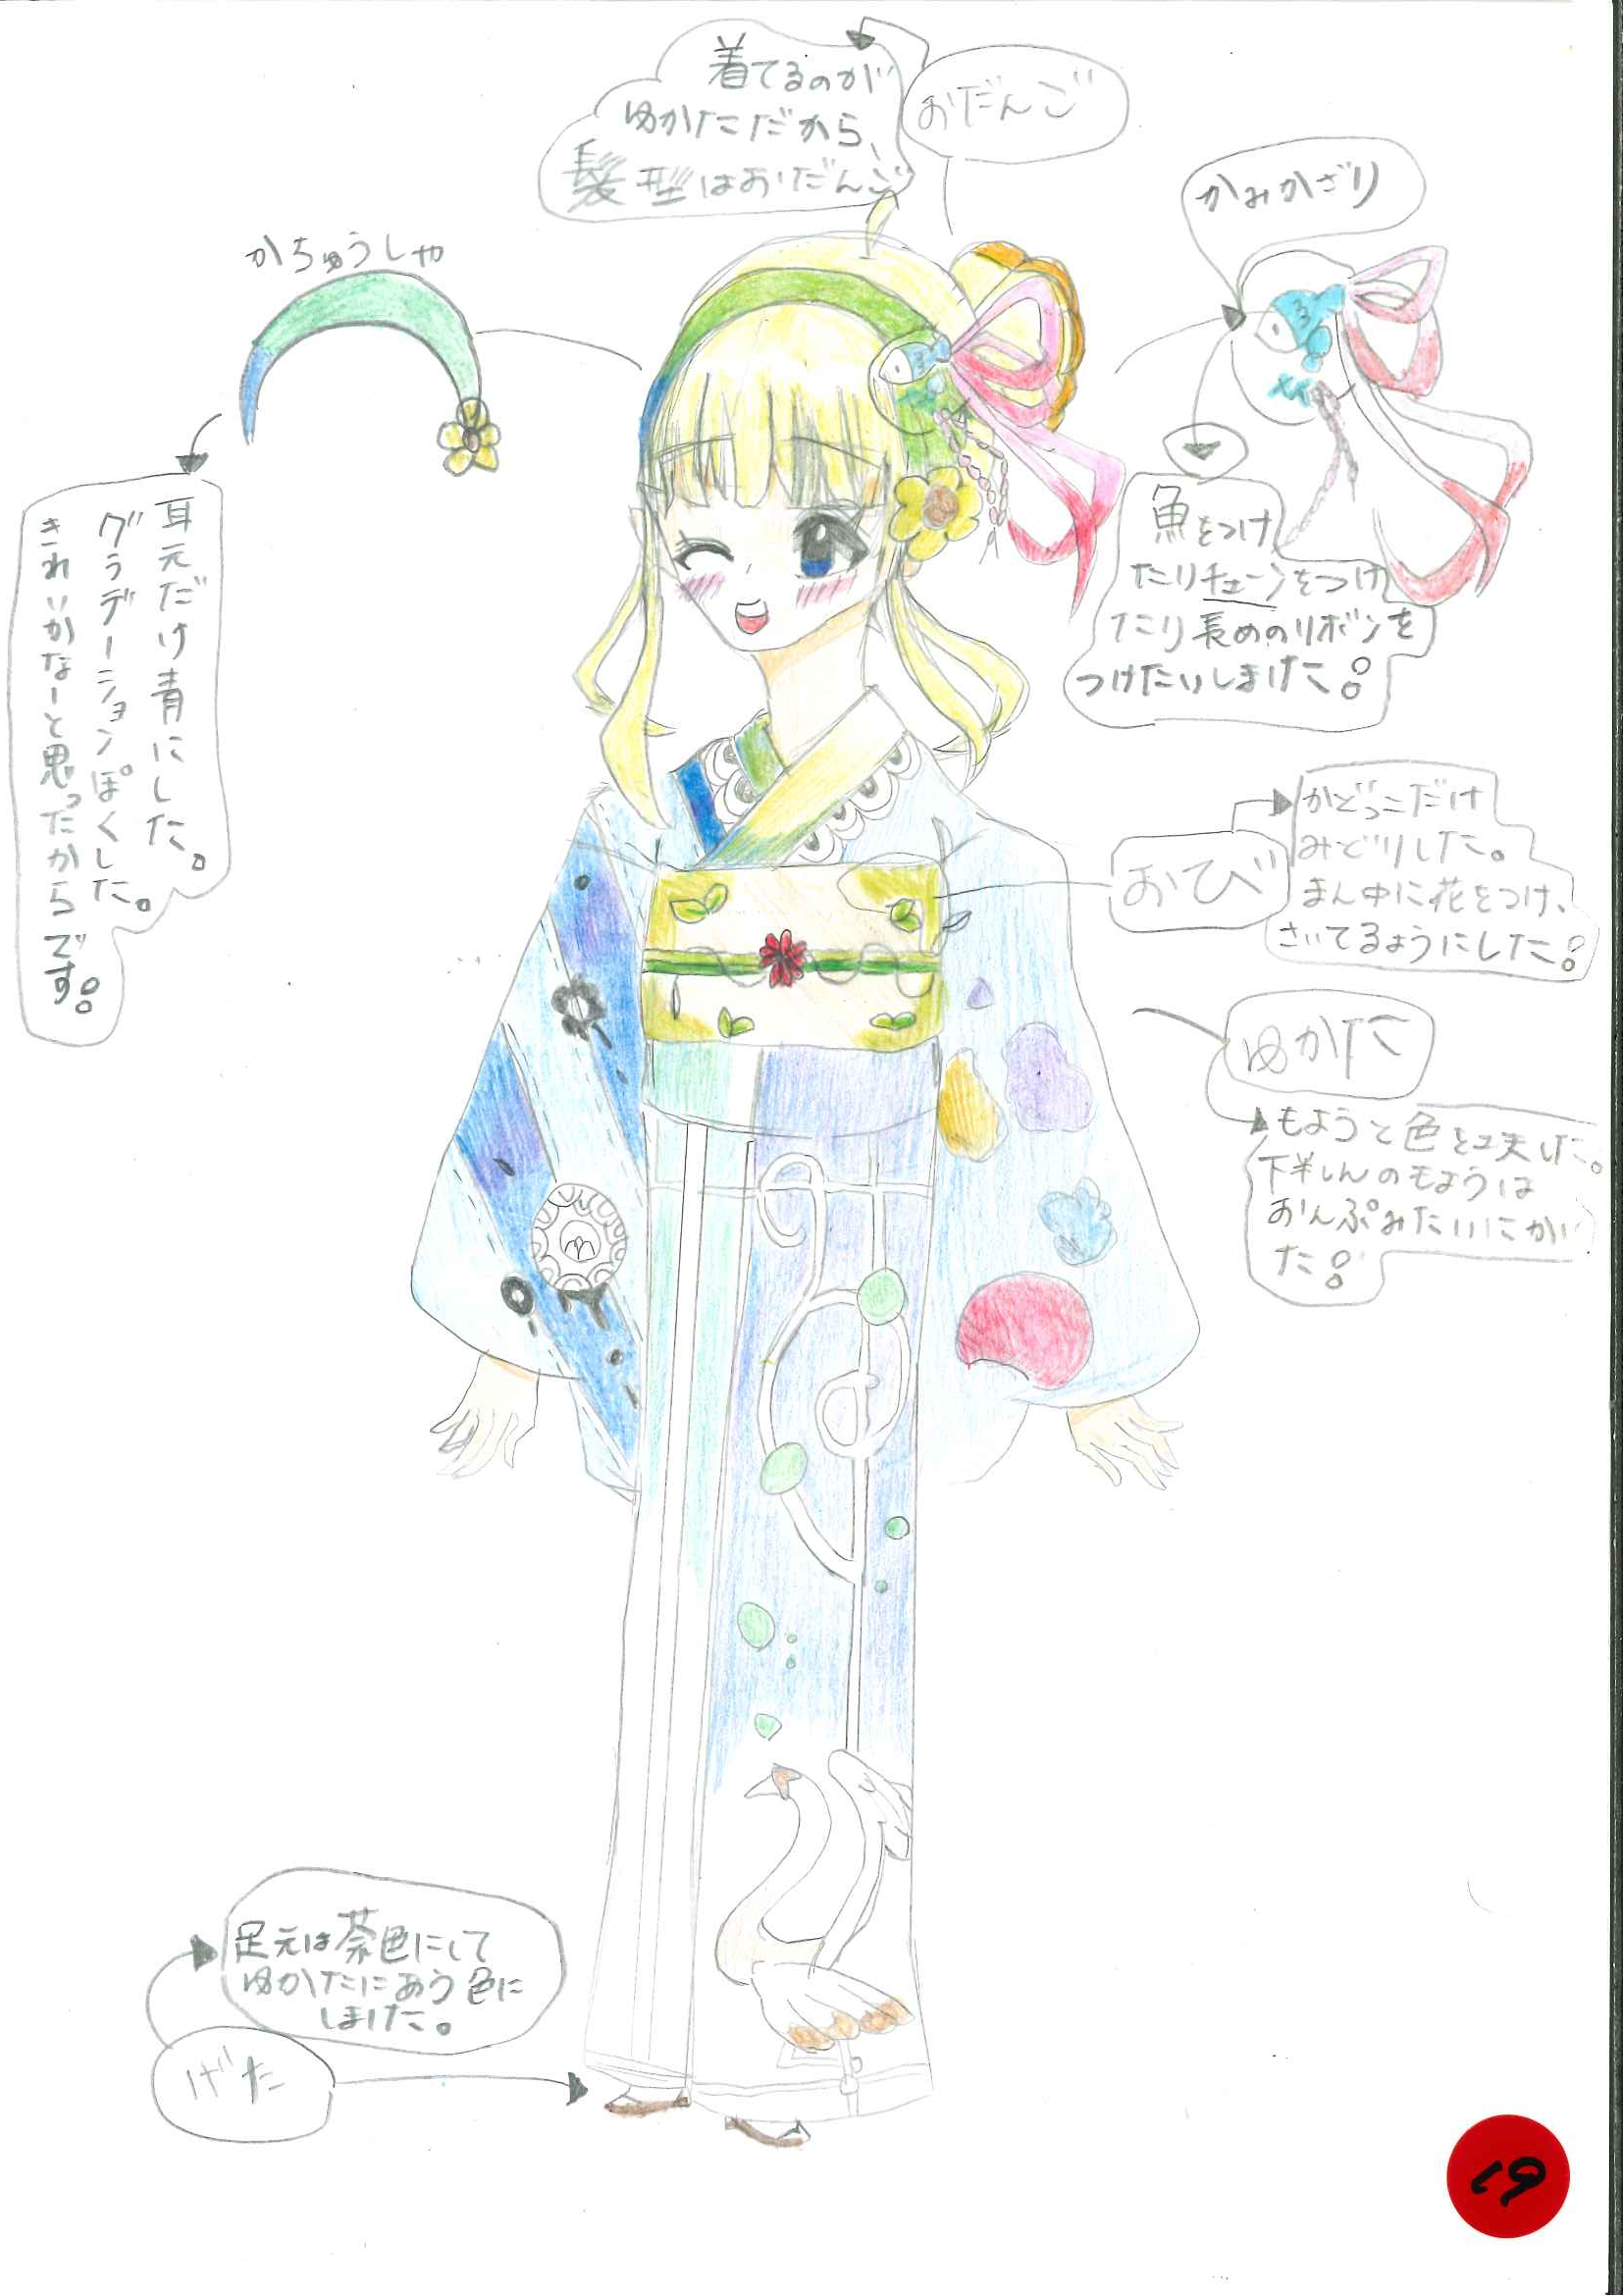 着てるのが
ゆかただから、
髪型はおだんご
おだんご
かみかざり
かちゅうしゃ
耳元だけ青にした。
グラデーションぽくした。
きれいかなーと思ったからです。
魚をつけ
たりチェーンをつけ
たり長めのリボンを
つけたいしました。
おび
かどっこだけ
みどりした。
まん中に花をつけ、
さいてるようにした。
ゆかた
もようと色を工夫した。
下半しんのもようは
おんぷみたいにかい
た。
足元は茶色にして
ゆかたにあう色に
しました。
げた
19